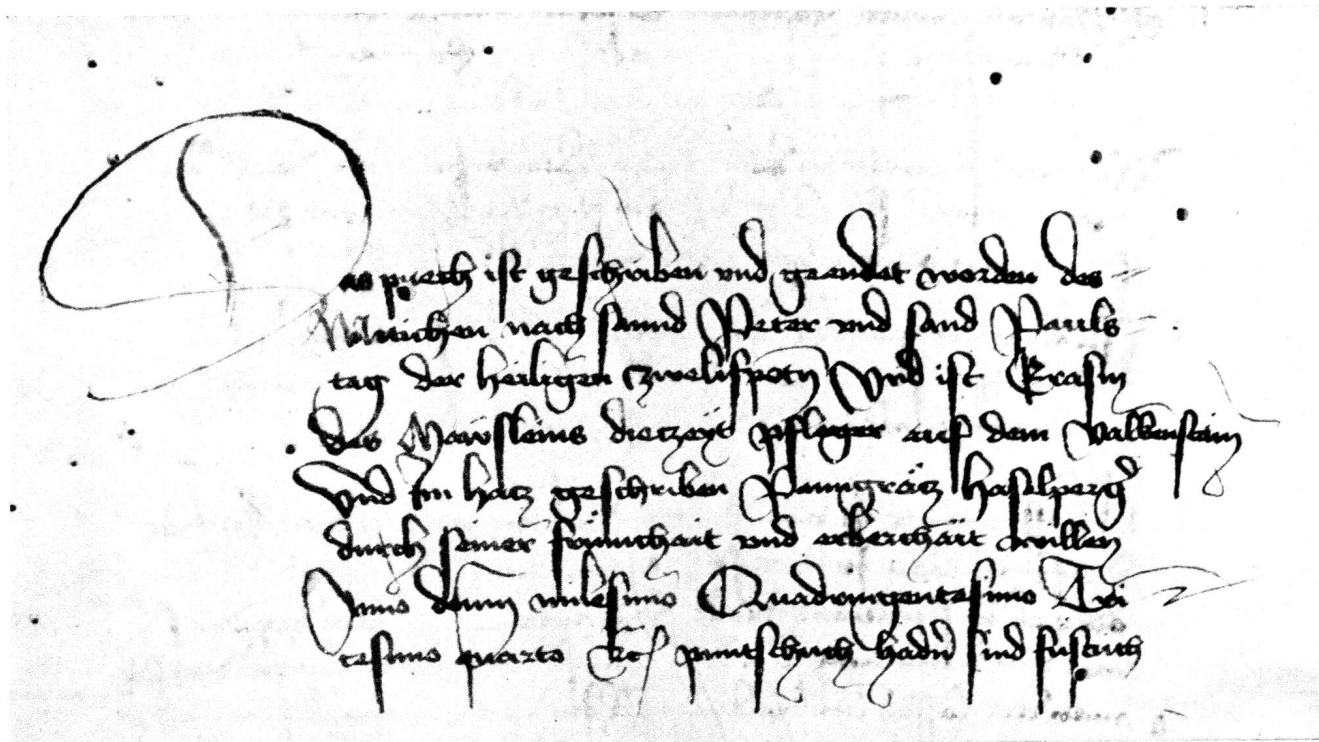 Das puech ist geschriben vnd geendet worden des
Mitichen nach sannd Peter vnd sand Pauls
tag der heiligen czwelifpotn Vnd ist Erasm
des dieczeyt pfleger auf dem Valkenstain
Vnd im hatz geschriben Panngräcz Haselperger
durch seiner frümchait vnd erberchait willen
Anno domini milesimo Quadringentesimo Tri
cesimo quarto Etc puntschuch hadern sind